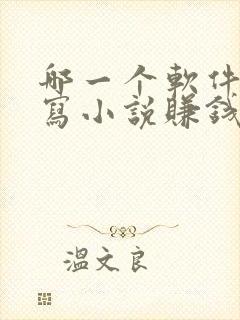 哪一个軟件
寫小說賺錢
溫文良